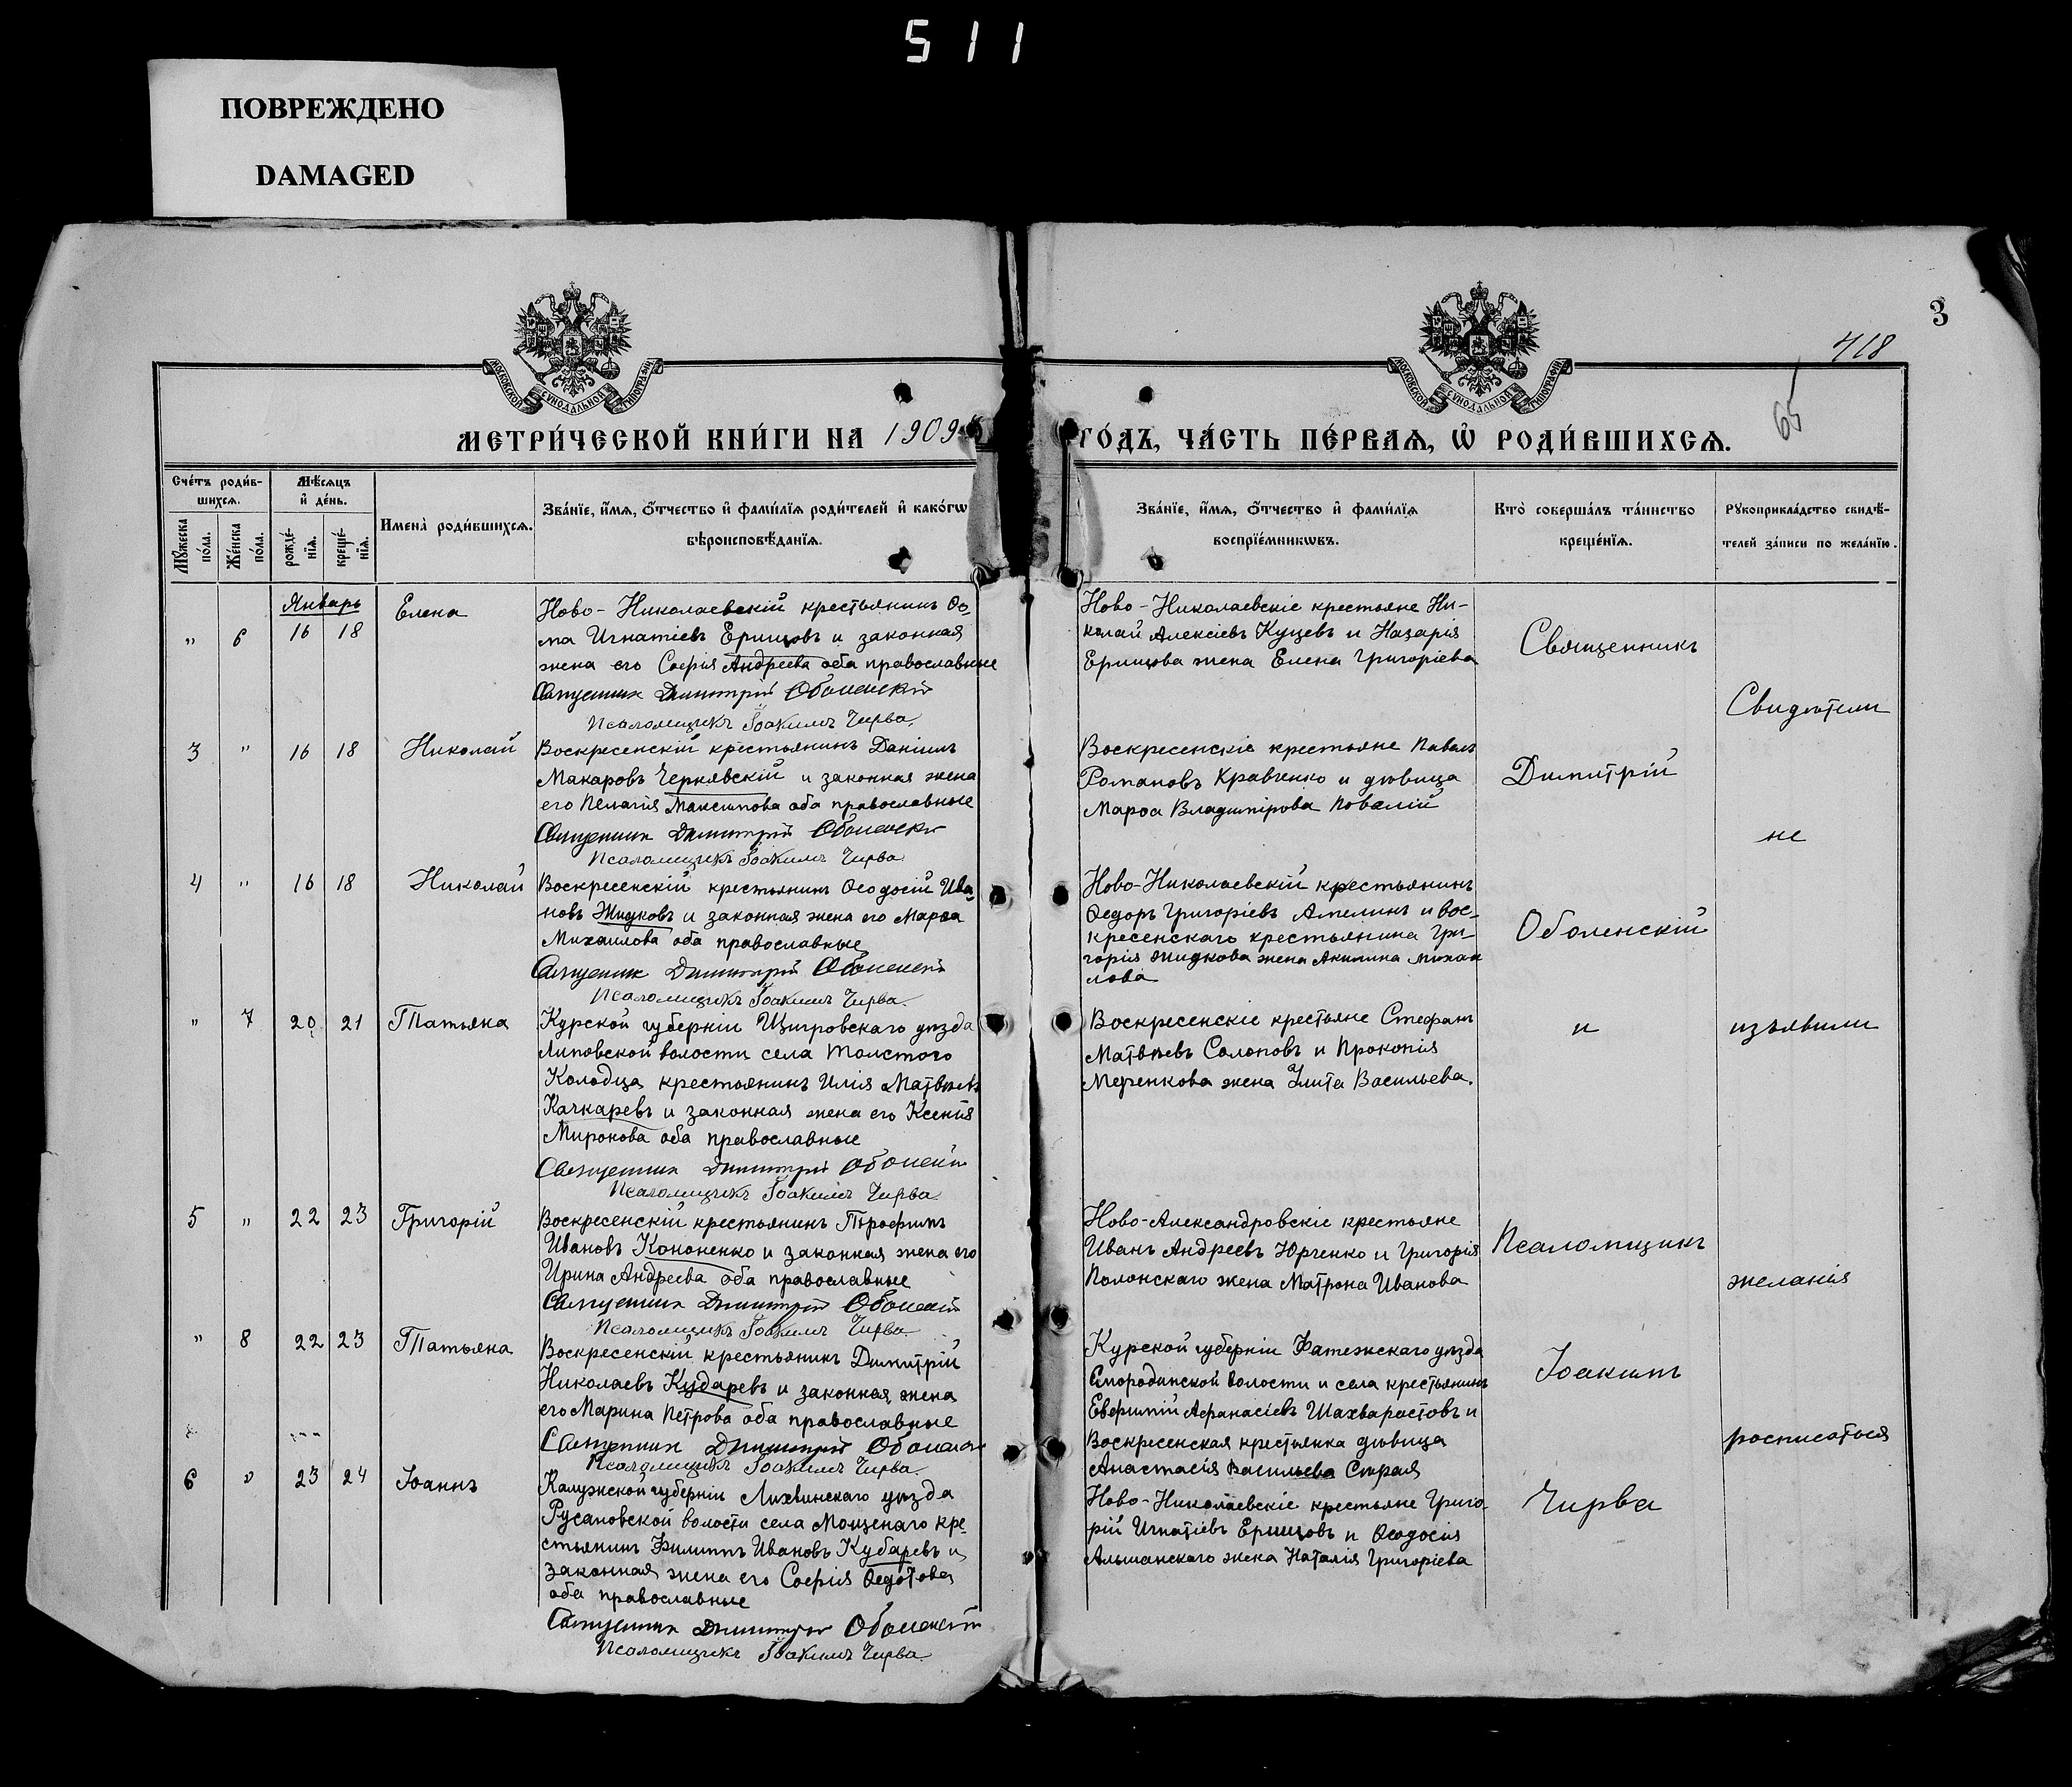 511
ПОВРЕЖДЕНО
DAMAGED
3
418
65
МОСКОВСКОЙ СѴНОДАЛЬНОЙ ТИПОГРАФІИ
МОСКОВСКОЙ СѴНОДАЛЬНОЙ ТИПОГРАФІИ
МЕТРИ́ЧЕСКОЙ КНИ́ГИ НА 1909
ГО́ДЪ, ЧА́СТЬ ПЕ́РВАѦ, Ѡ҆ РОДИ́ВШИХСѦ.
Сче́тъ роди́в-
шихсѧ.
Мꙋ́жеска по́ла.
Же́нска по́ла.
Мѣ́сѧцъ
и҆ де́нь.
рожде́-
нїѧ.
креще́-
нїѧ.
Имена̀ роди́вшихсѧ.
Зва́нїе, и҆́мѧ, ѻ҆́тчество и҆ фами́лїѧ роди́телей и҆ како́гѡ
вѣроисповѣ́данїѧ.
Зва́нїе, и҆́мѧ, ѻ҆́тчество и҆ фами́лїѧ
воспрїе́мникѡвъ.
Кто̀ соверша́лъ та́инство
креще́нїѧ.
Рꙋкоприкла́дство свидѣ́-
телей за́писи по жела́нїю.
Январь
" 6 16 18 Елена
Ново-Николаевскій крестьянинъ Ѳо-
ма Игнатіевъ Ершовъ и законная
жена его Софія Андреева оба православные
Священник Димитрій Оболенскій
Псаломщикъ Іоакимъ Чирва.
Ново-Николаевскіе крестьяне Ни-
колай Алексіевъ Куцевъ и Назарія
Ершова жена Елена Григоріева
3 " 16 18 Николай
Воскресенскій крестьянинъ Даніилъ
Макаровъ Чернявскій и законная жена
его Пелагія Максимова оба православные
Священник Димитрій Оболенскій
Псаломщикъ Іоакимъ Чирва
Воскресенскіе крестьяне Павелъ
Романовъ Кравченко и дѣвица
Марѳа Владимірова Повалій
4 " 16 18 Николай
Воскресенскій крестьянинъ Ѳеодосій Ива-
новъ Жидковъ и законная жена его Марѳа
Михаилова оба православные
Священник Димитрій Оболенскій
Псаломщикъ Іоакимъ Чирва.
Ново-Николаевскій крестьянинъ
Ѳедоръ Григоріевъ Амелинъ и вос-
кресенскаго крестьянина Гри-
горія Жидкова жена Акилина Михаи
лова
" 7 20 21 Татьяна
Курской губерніи Щигровскаго уѣзда
Липовской волости села Толстого
Колодца крестьянинъ Илія Матвѣевъ
Качкаревъ и законная жена его Ксенія
Миронова оба православные
Священник Димитрій Оболенскій
Псаломщикъ Іоакимъ Чирва
Воскресенскіе крестьяне Стефанъ
Матвѣевъ Солоповъ и Прокопія
жена Улита Васильева.
5 " 22 23 Григорій
Воскресенскій крестьянинъ Трофимъ
Ивановъ Кононенко и законная жена его
Ирина Андреева оба православные
Священник Димитрій Оболенскій
Псаломщикъ Іоакимъ Чирва
Ново-Александровскіе крестьяне
Иванъ Андреевъ Юрченко и Григорія
Полонскаго жена Матрона Иванова
" 8 22 23 Татьяна
Воскресенскій крестьянинъ Димитрій
Николаевъ Кударевъ и законная жена
его Марина Петрова оба православные
Священник Димитрій Оболенскій
Псаломщикъ Іоакимъ Чирва.
Курской губерніи Фатежскаго уѣзда
Смородинской волости и села крестьянинъ
Евфимій Афанасіевъ Шахворостовъ и
Воскресенская крестьянка дѣвица
Анастасія Васильева Старая
6 " 23 24 Іоаннъ
Калужской губерніи Лихвинскаго уѣзда
Русановской волости села Мощенаго кре-
стьянинъ Филиппъ Ивановъ Кубаревъ и
законная жена его Софія Ѳедотова
оба православные
Священник Димитрій Оболенскій
Псаломщикъ Іоакимъ Чирва
Ново-Николаевскіе крестьяне Григо-
рій Игнатіевъ Ершовъ и Ѳеодосія
Альшанскаго жена Наталія Григоріева
Священникъ
Димитрій
Оболенскій
и
Псаломщикъ
Іоакимъ
Чирва
Свидѣтели
не
изъявили
желанія
росписаться